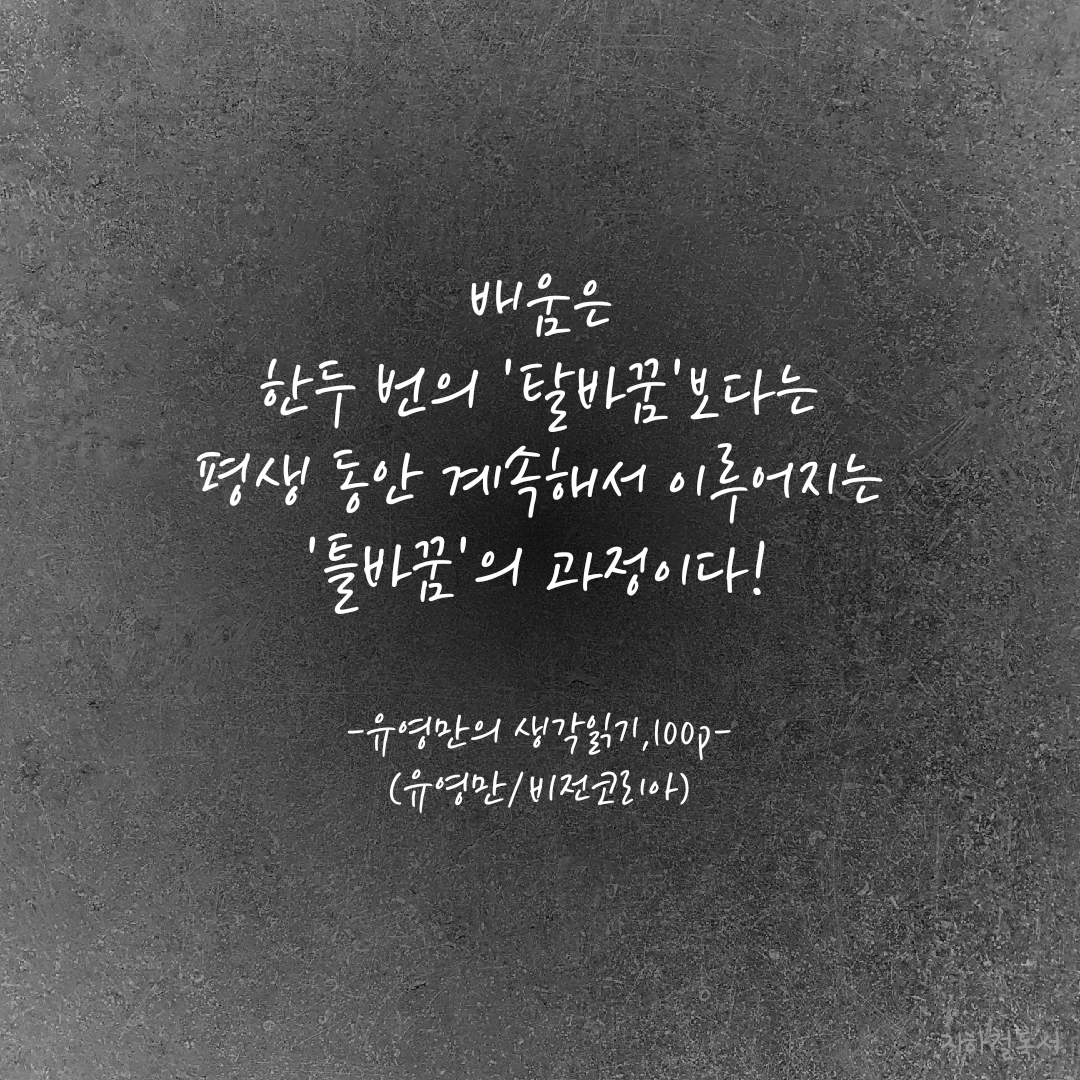 배움은
한두 번의 '탈바꿈'보다는
평생 동안 계속해서 이루어지는
'틀바꿈'의 과정이다!
-유영만의 생각읽기,100p-
(유영만/비전코리아)
지하철독서